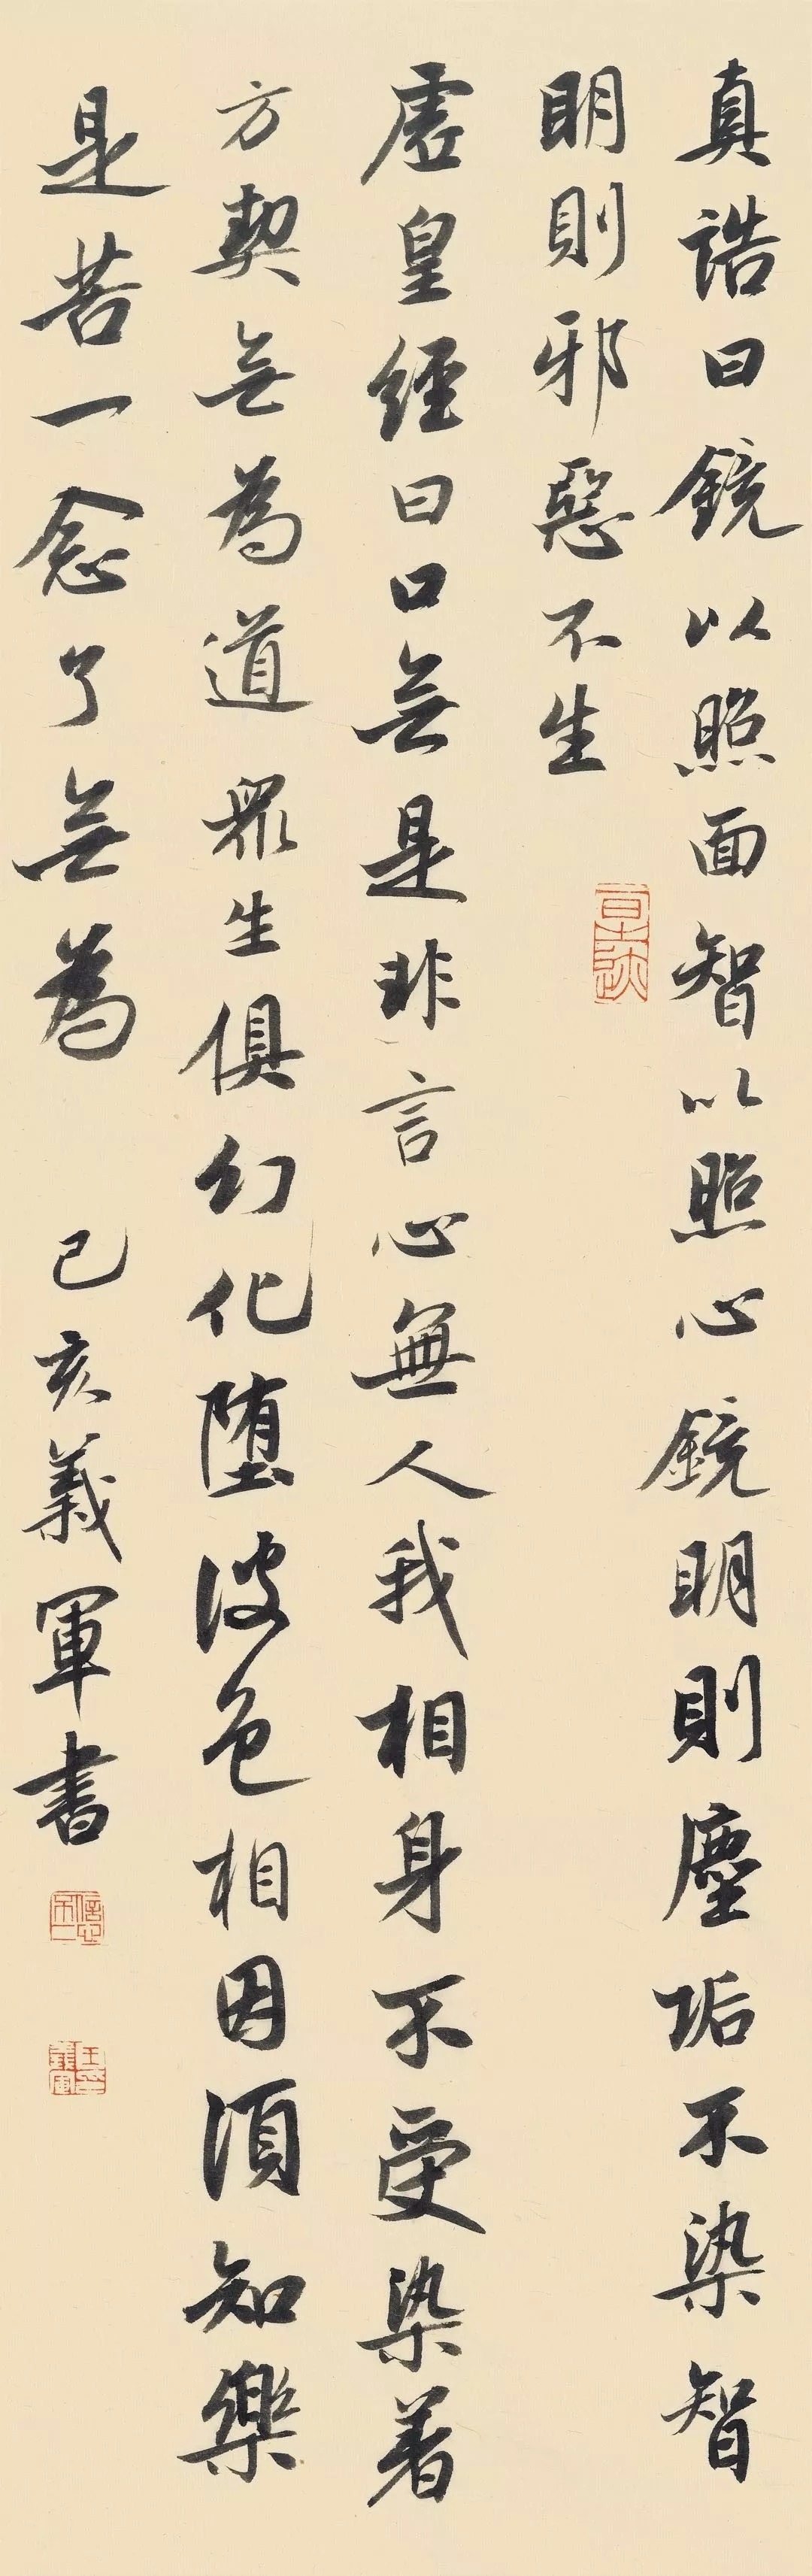 真誥曰鏡以照面智以照心鏡明則塵垢不染智
明則邪惡不生
虛皇經曰口無是非言心無人我相身不受染著
方契無為道眾生俱幻化墮彼色相因須知樂
是苦一念了無為
己亥義軍書